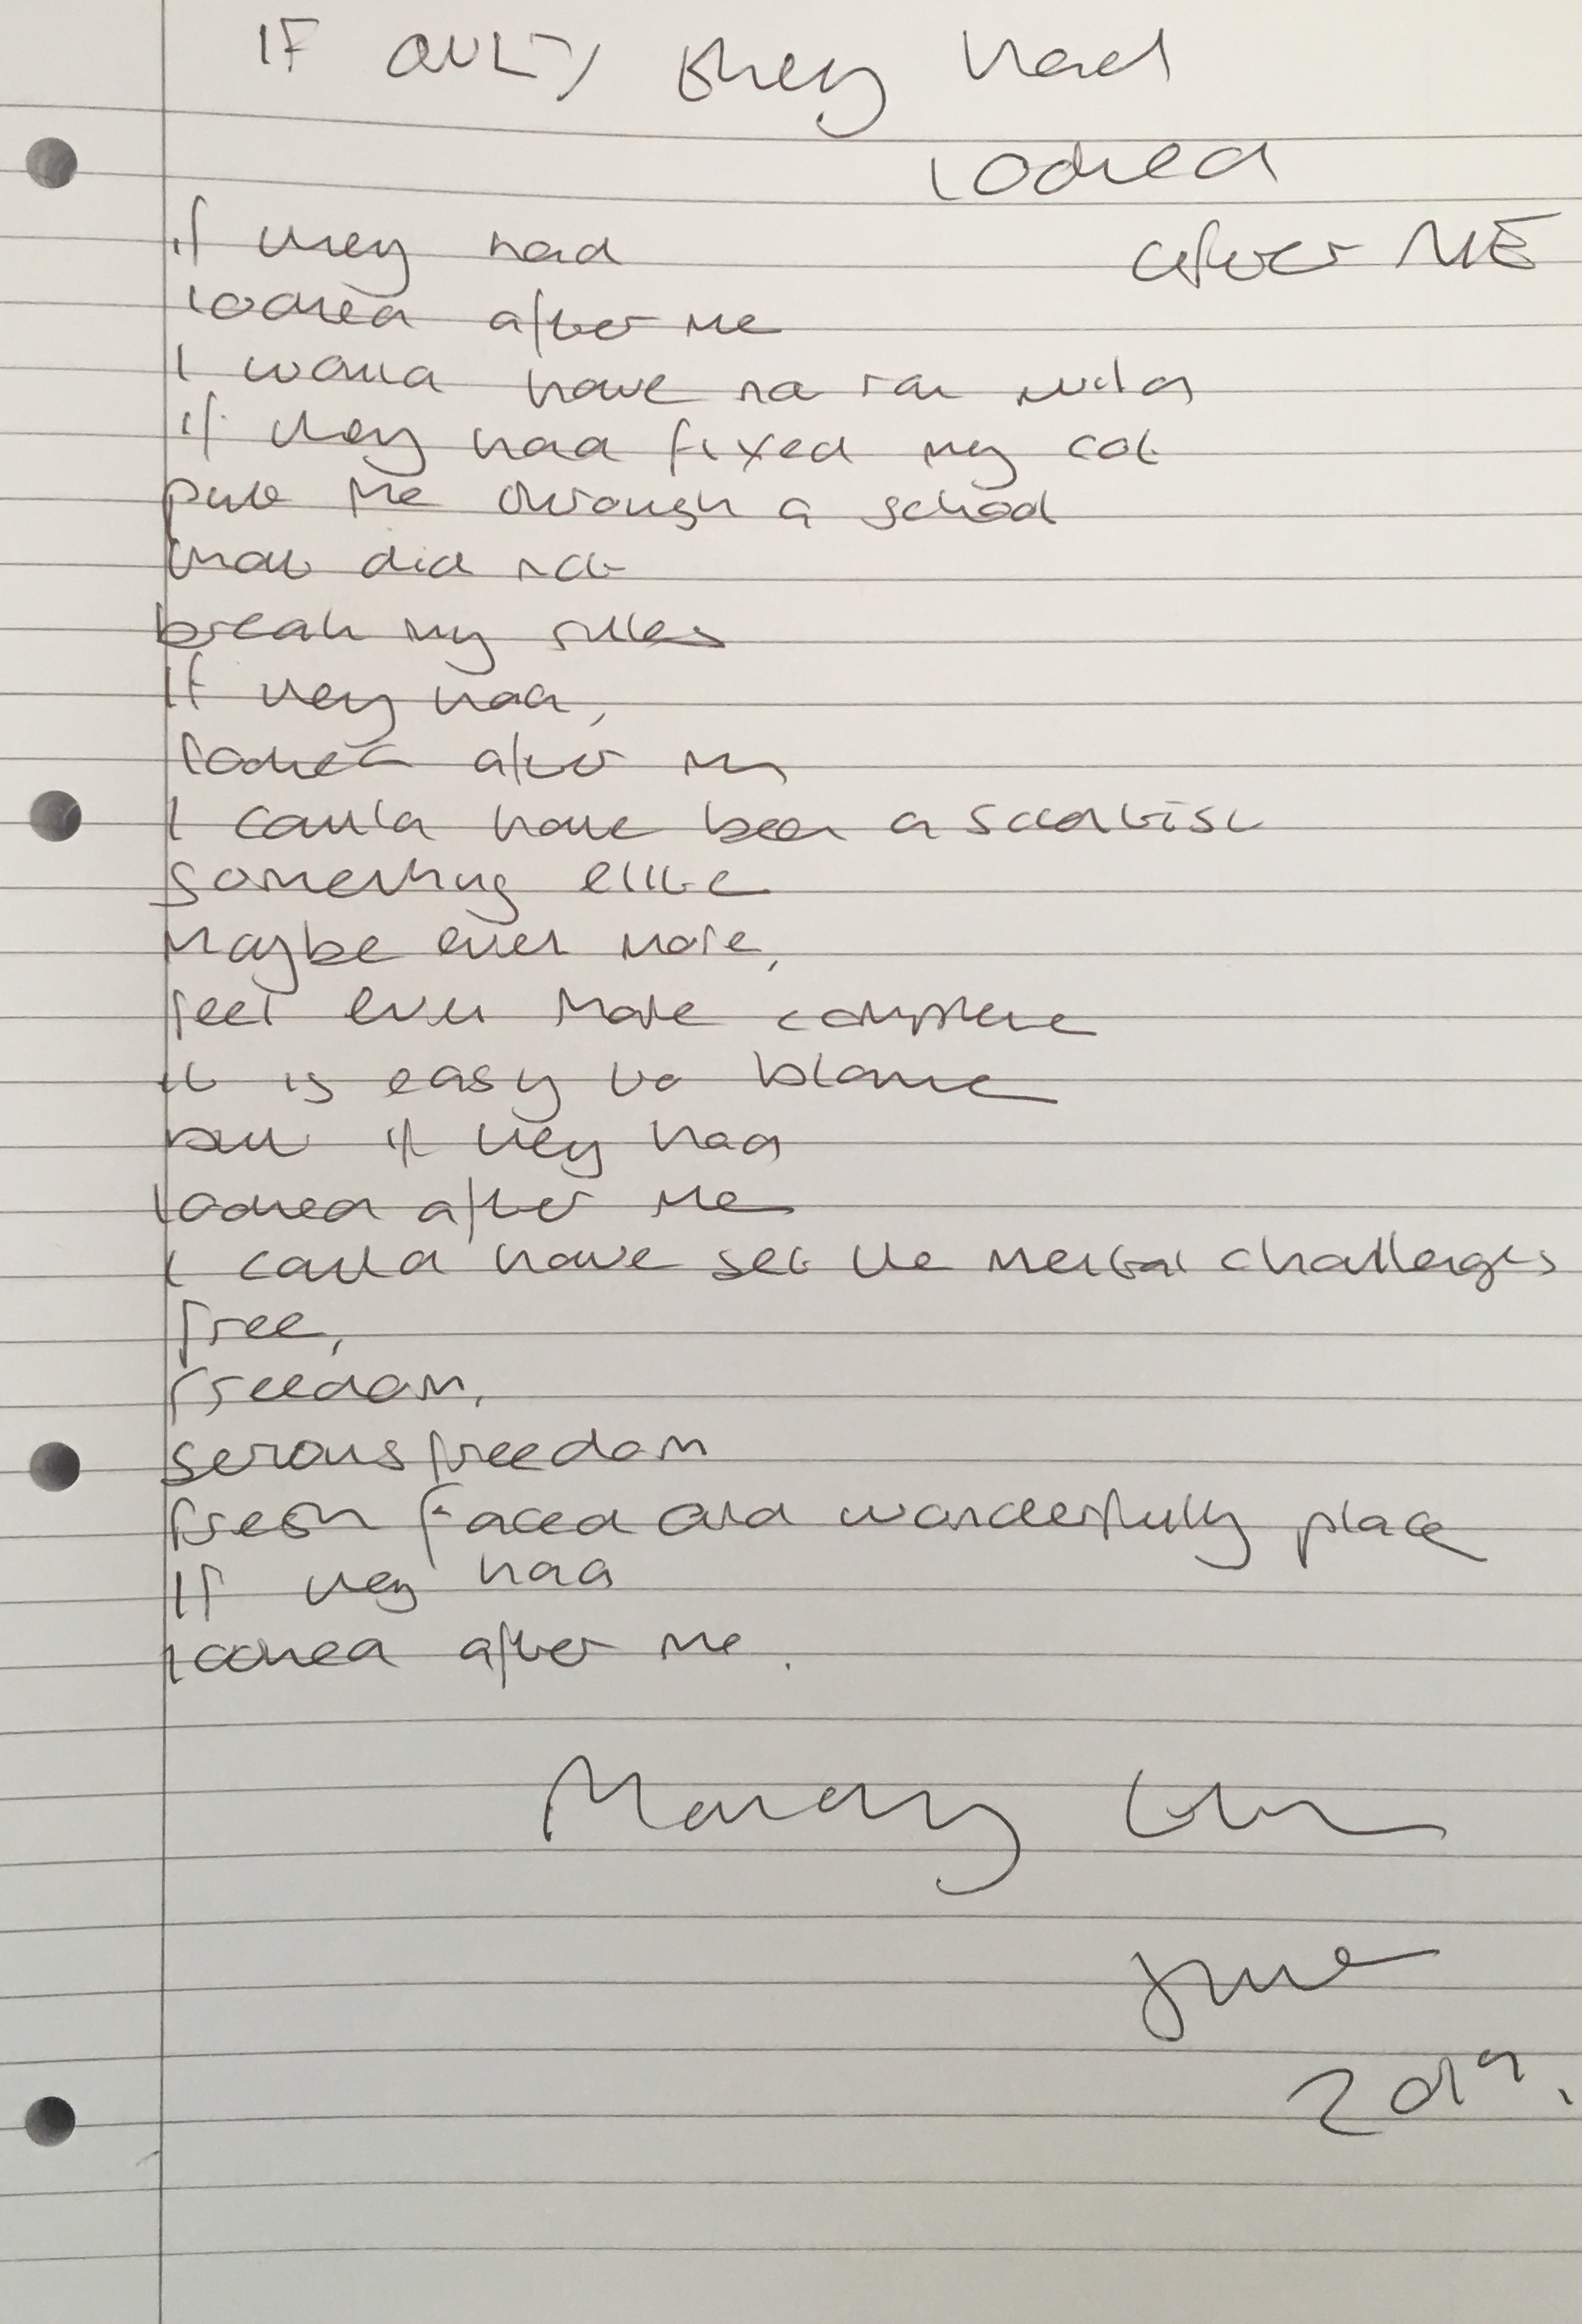 IF ONLY they had
looked
after ME
if they had
looked after me
I would have not ran wild
if they had fixed my cot
put me through a school
that did not
break my rules
If they had,
looked after me
I could have been a scientist
something elite
Maybe even more,
feel even more complete
it is easy to blame
but if they had
looked after me
I could have set the mental challenges
free,
freedom,
serious freedom
fresh faced and wonderfully place
If they had
looked after me.
Mandy
June
2019.